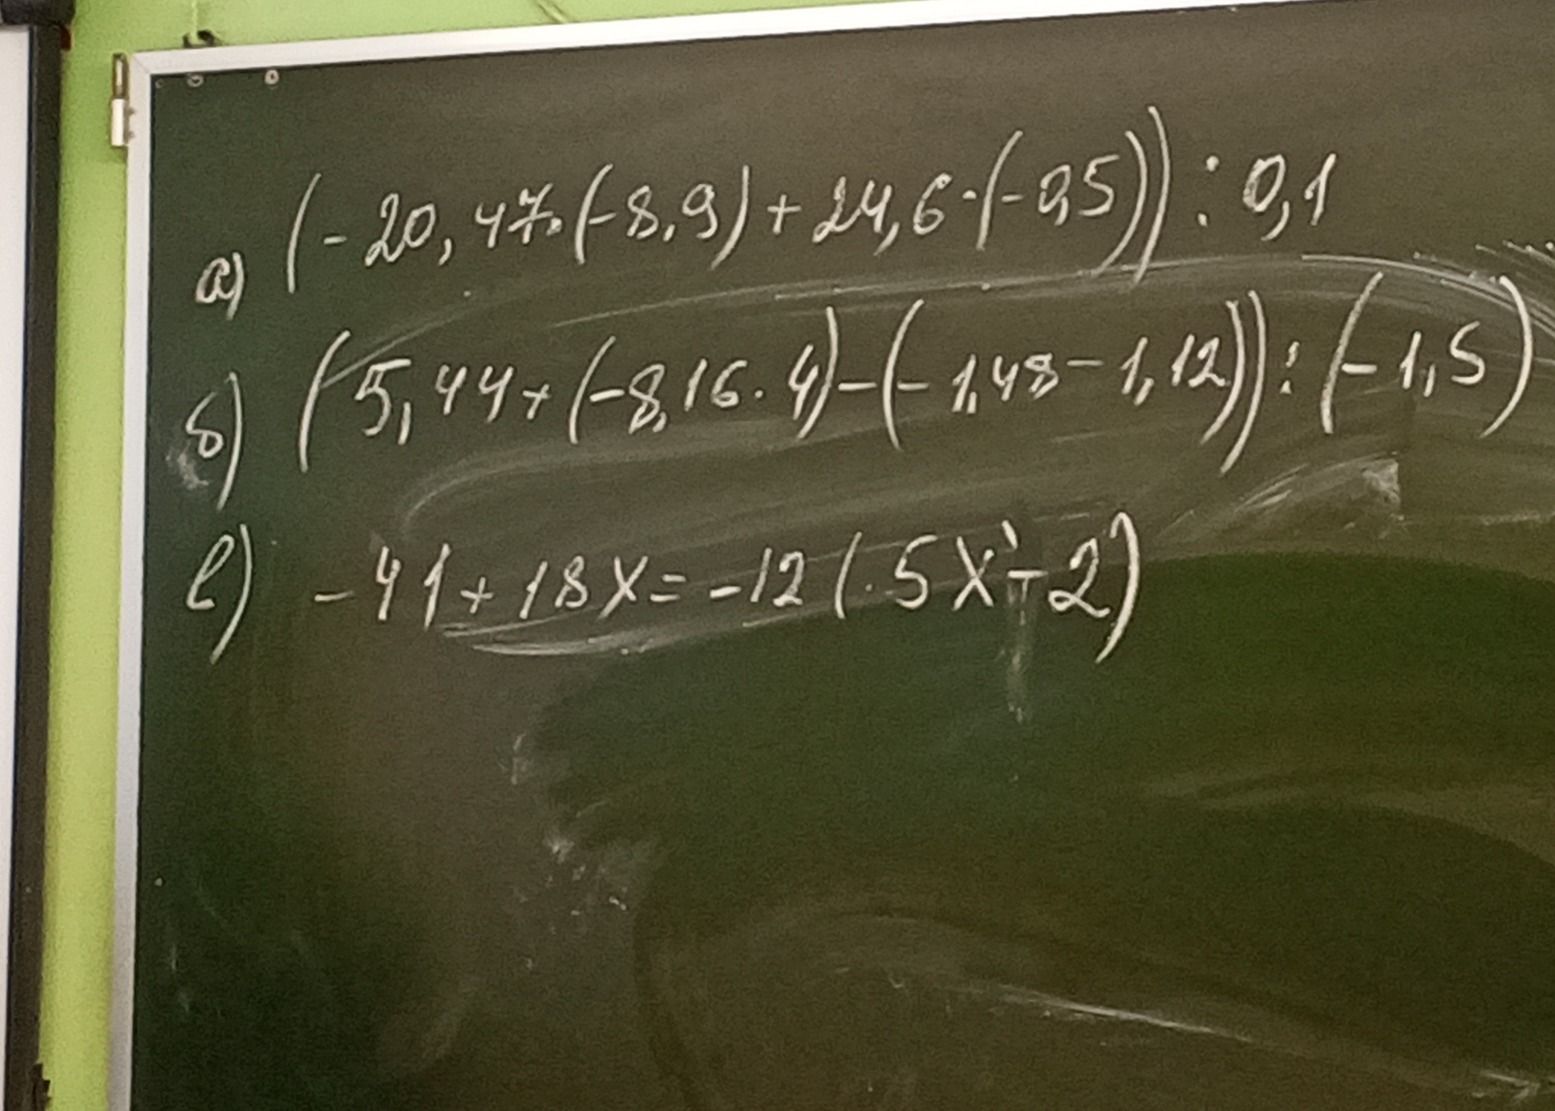 а) (-20,47·(-8,9)+24,6·(-0,5)):0,1
б) (5,44+(-8,16·4)-(-1,48-1,12)):(-1,5)
в) -41+18x=-12(5x-2)